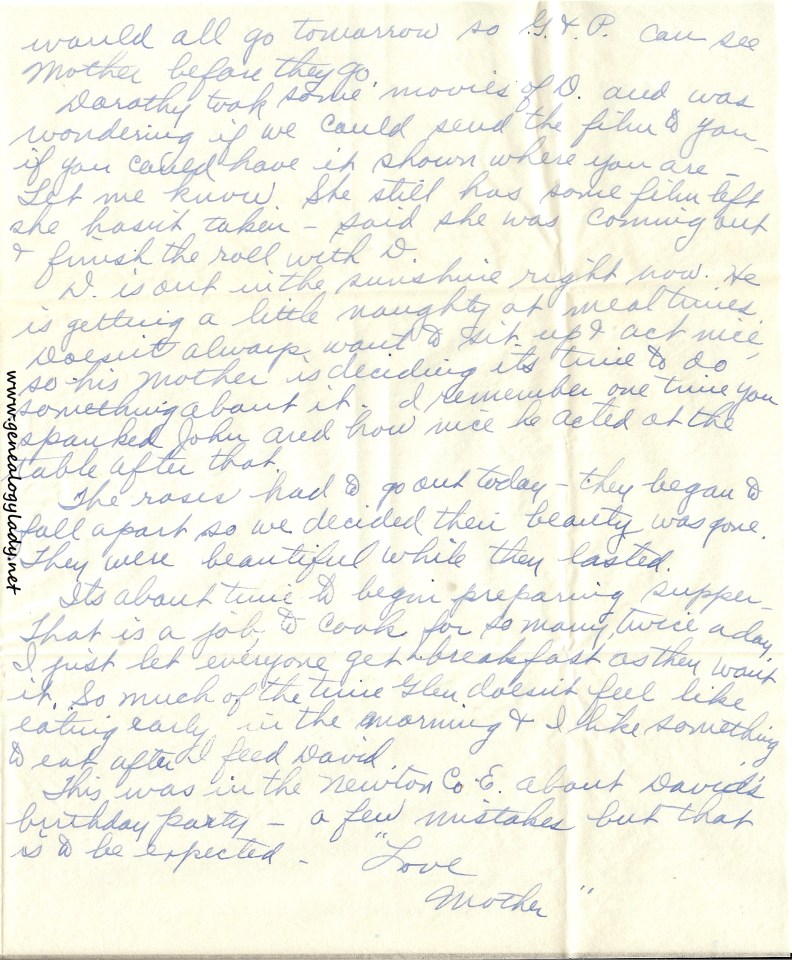 would all go tomorrow so G. & P. can see
Mother before they go.
Dorothy took some movies of D. and was
wondering if we could send the film to you -
if you could have it shown where you are -
Let me know. She still has some film left
she hasn't taken - said she was coming out
& finish the roll with D.
D. is out in the sunshine right now. He
is getting a little naughty at meal times,
doesn't always want to sit up & act nice,
so his Mother is deciding its time to do
something about it. I remember one time you
spanked John and how nice he acted at the
table after that.
The roses had to go out today - they began to
fall apart so we decided their beauty was gone.
They were beautiful while they lasted.
Its about time to begin preparing supper -
That is a job, to cook for so many, twice a day.
I just let everyone get breakfast as they want
it. So much of the time Glen doesn't feel like
eating early in the morning & I like something
to eat after I feed David.
This was in the Newton Co. E. about David's
birthday party - a few mistakes but that
is to be expected - "Love
Mother"
www.genealogylady.net